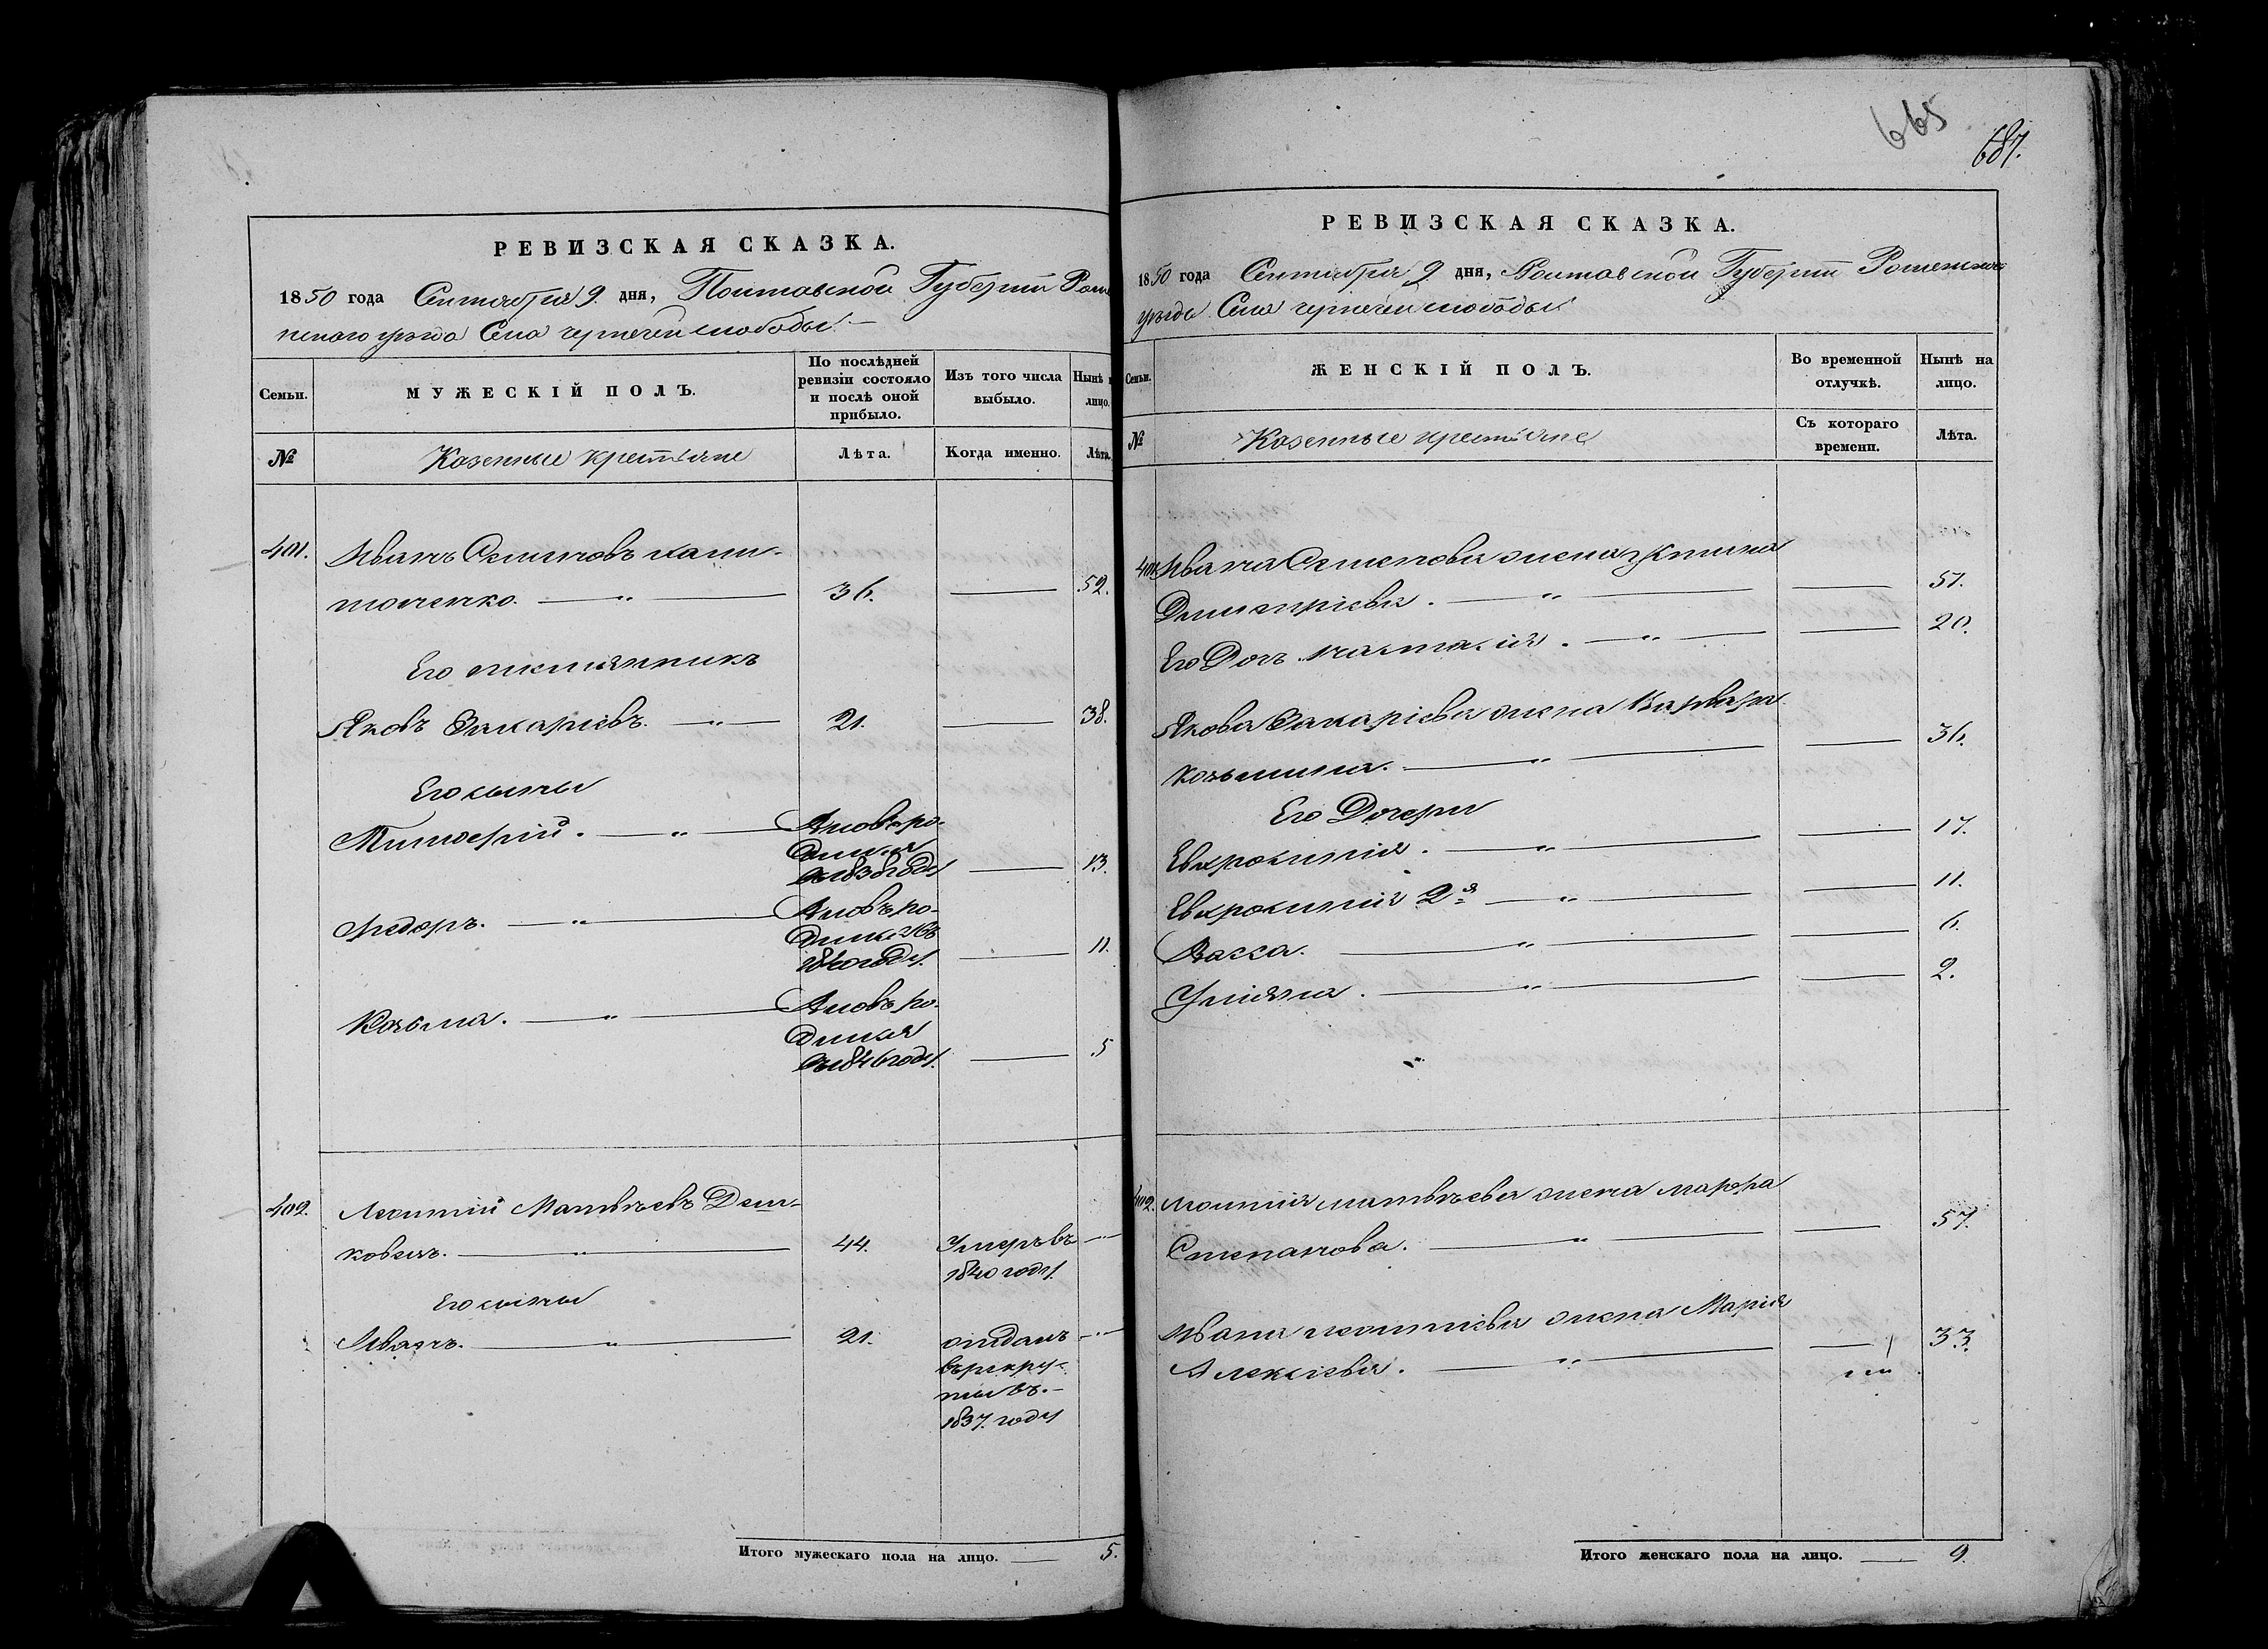 РЕВИЗСКАЯ СКАЗКА.
1850 года Сентября 9 дня, Полтавской Губерніи Роме
нского уѣзда Села чернечей слободы
Семьи.
МУЖЕСКІЙ ПОЛЪ.
По послѣдней ревизіи состояло и послѣ оной прибыло.
Изъ того числа выбыло.
Нынѣ лицо.
№
Казенные крестьяне
Лѣта.
Когда именно.
Лѣта.
401. Иванъ Семеновъ
36. 52.
Его племянникъ
Яковъ Захаріевъ. 21. 38.
Его сыны
Тимофей. Вновь ро-
дился
въ 1838 году 13.
Федоръ. Вновь ро-
дился въ
1840 году. 11.
Козьма. Вновь ро-
дился
въ 1846 году. 5
402. Леонтій Матвѣевъ
44. Умеръ въ
1840 году.
Его сыны
Иванъ. 21. отданъ
въ рекру-
ты въ
1837. году
Итого мужескаго пола на лицо. 5.
665
687.
РЕВИЗСКАЯ СКАЗКА.
1850 года Сентября 9 дня, Полтавской Губерніи Роменского
уѣзда Села чернечей слободы
Семьи.
ЖЕНСКІЙ ПОЛЪ.
Во временной отлучкѣ.
Нынѣ на лицо.
№
Казенные крестьяне
Съ котораго времени.
Лѣта.
401. Ивана Семенова жена
Дмитріева. 51.
Его Дочь Наталія. 20.
Якова Захаріева жена Варвара
Козьмина. 36.
Его Дочери
Евфросинія. 17.
Евфросинія 2я 11.
Васса. 6.
Уліяна. 2.
402. Леонтія Матвѣева жена Марфа
Степанова. 57.
Ивана Леонтіева жена Марія
Алексіева. 33.
Итого женскаго пола на лицо. 9.